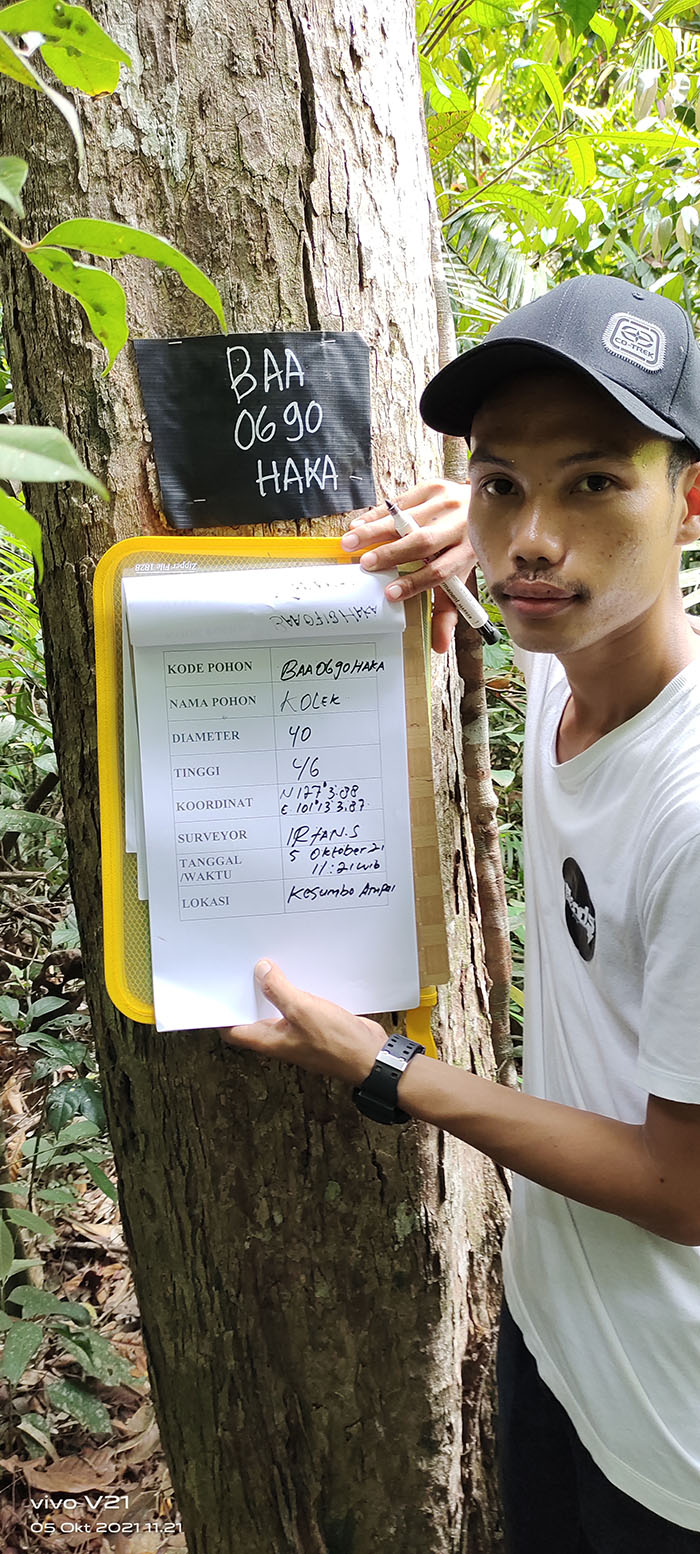 BAA
0690
HAKA
CO-TREK
Zipper File 1828
KODE POHON BAA0690HAKA
NAMA POHON KOLEK
DIAMETER 40
TINGGI 46
KOORDINAT N 1°27'3.88
E 101°13'3,87.
SURVEYOR IRFAN.S
TANGGAL 5 Oktober 21
/WAKTU 11:21 wib
LOKASI Kesumbo Ampai
vivo V21
05 Okt 2021 11.21